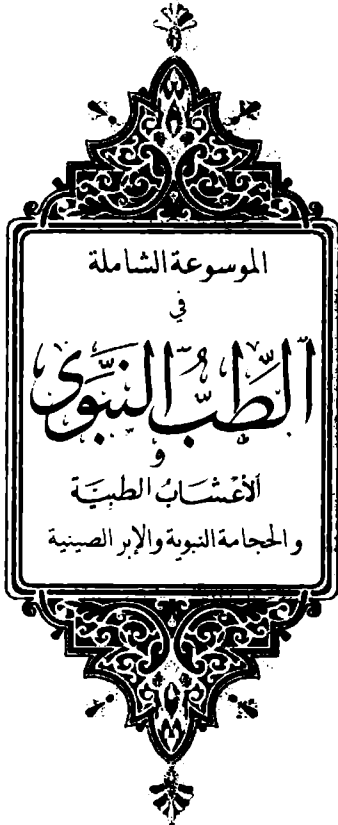 الموسوعة الشاملة
في
الطِّبُّ النَّبَوِّى
و
الأعْشَابُ الطبيَّة
والحجامة النبوية والإبر الصينية